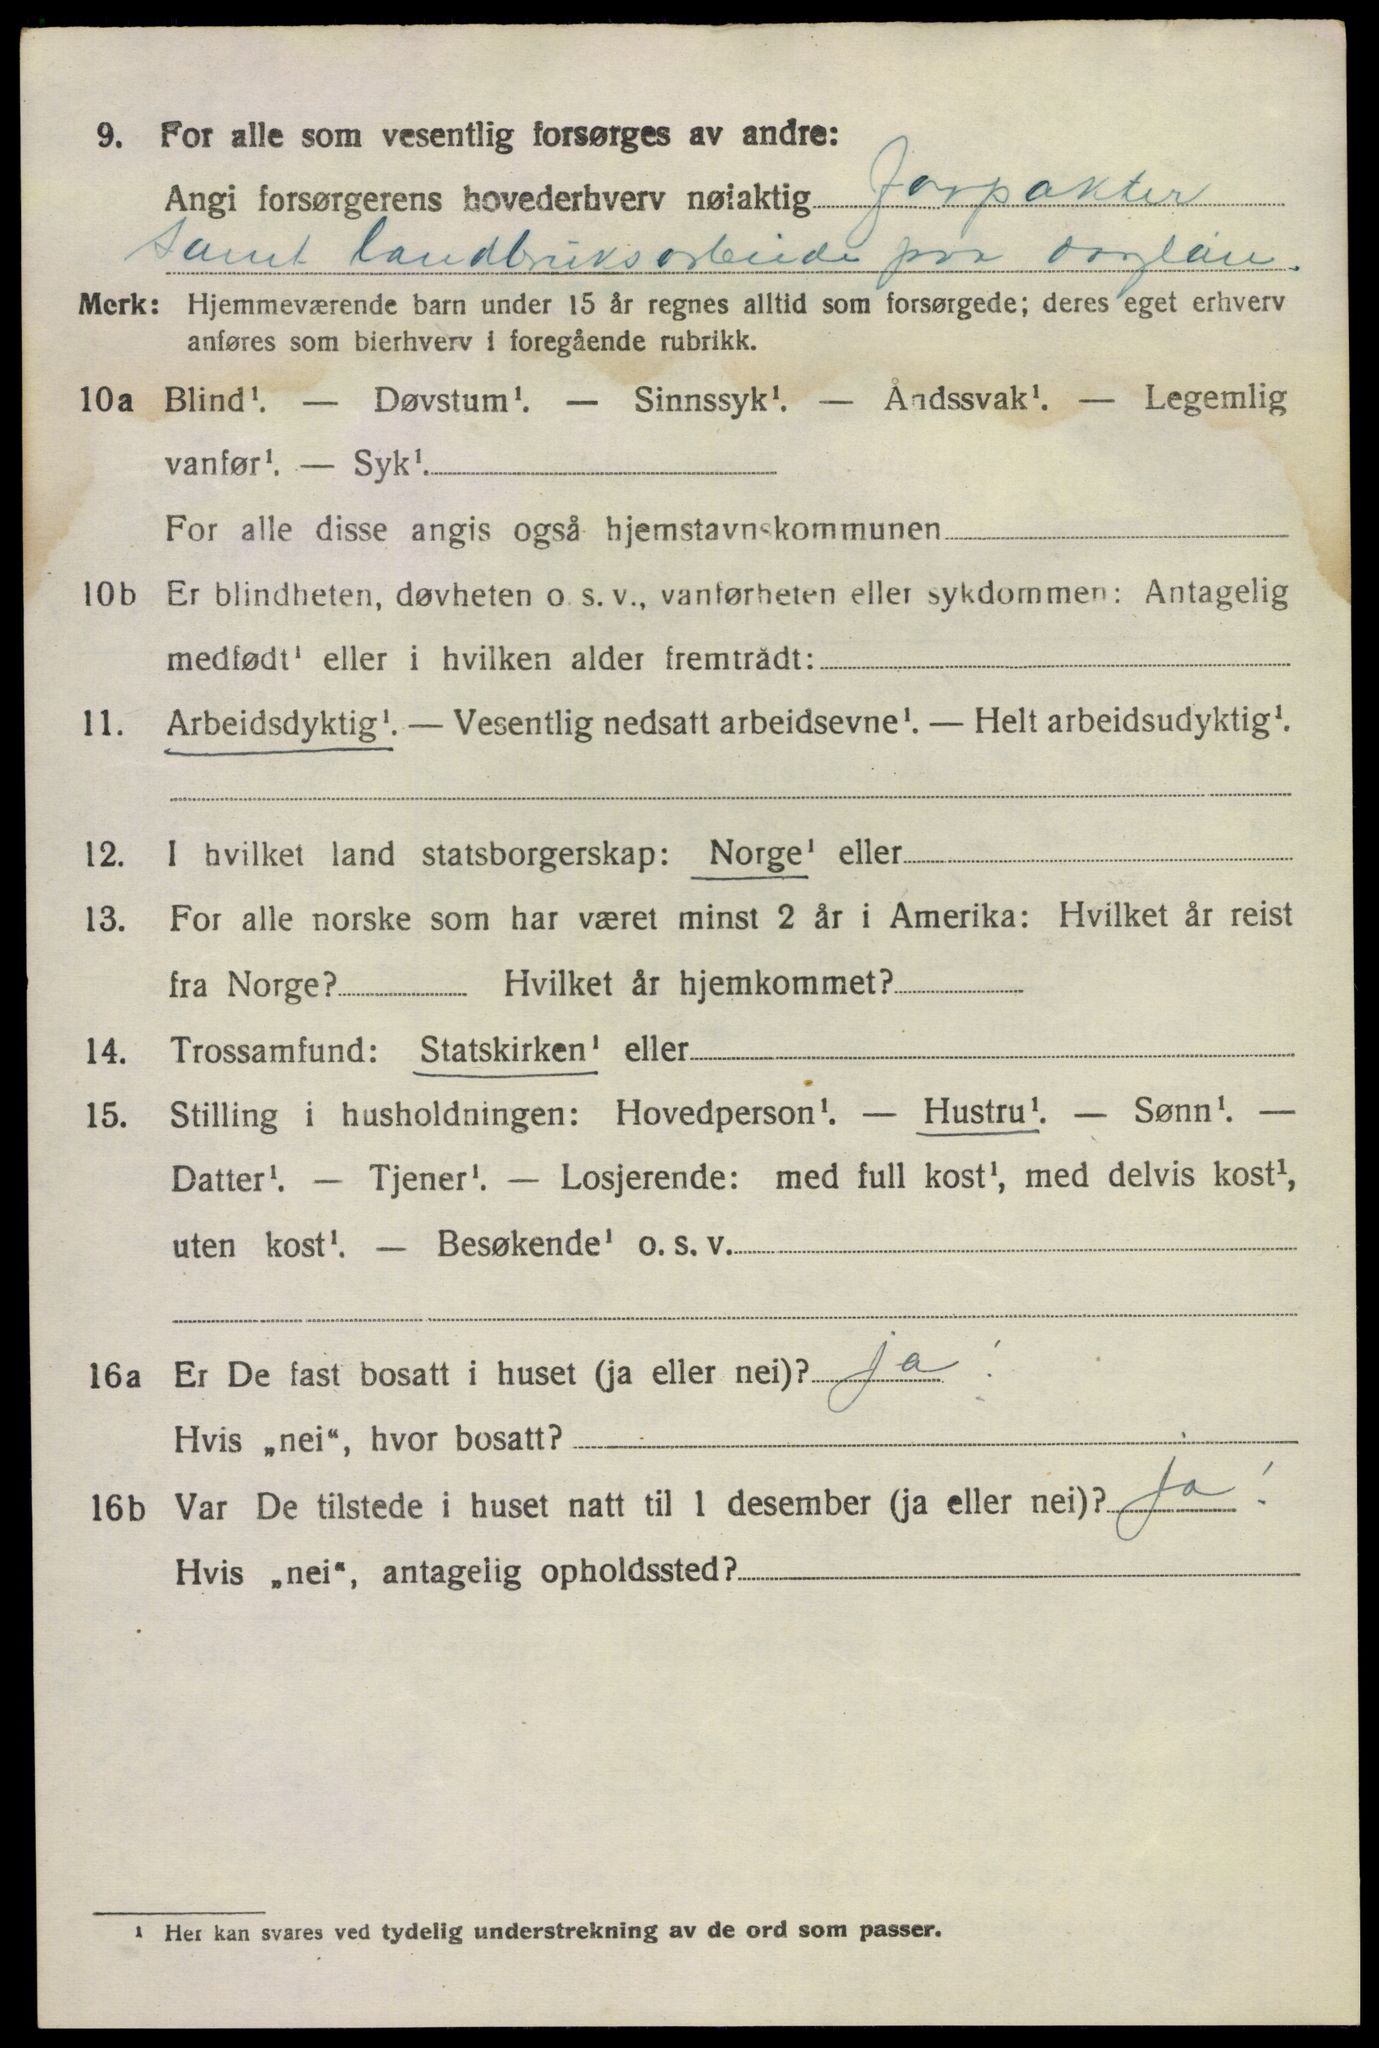 9. For alle som vesentlig forsørges av andre:
Angi forsørgerens hovederhverv nøiaktig Forpakter
samt landbruksarbeide paa dagløn.
Merk: Hjemmeværende barn under 15 år regnes alltid som forsørgede; deres eget erhverv
anføres som bierhverv i foregående rubrikk.
10a Blind¹. — Døvstum¹. — Sinnssyk¹. — Åndssvak¹. — Legemlig
vanfør¹. — Syk¹.
For alle disse angis også hjemstavnskommunen
10b Er blindheten, døvheten o. s. v., vanførheten eller sykdommen: Antagelig
medfødt¹ eller i hvilken alder fremtrådt:
11. Arbeidsdyktig¹. — Vesentlig nedsatt arbeidsevne¹. — Helt arbeidsudyktig¹.
12. I hvilket land statsborgerskap: Norge¹ eller
13. For alle norske som har været minst 2 år i Amerika: Hvilket år reist
fra Norge? Hvilket år hjemkommet?
14. Trossamfund: Statskirken¹ eller
15. Stilling i husholdningen: Hovedperson¹. — Hustru¹. — Sønn¹. —
Datter¹. — Tjener¹. — Losjerende: med full kost¹, med delvis kost¹,
uten kost¹. — Besøkende¹ o. s. v.
16a Er De fast bosatt i huset (ja eller nei)? ja!
Hvis „nei“, hvor bosatt?
16b Var De tilstede i huset natt til 1 desember (ja eller nei)? ja!
Hvis „nei“, antagelig opholdssted?
¹ Her kan svares ved tydelig understrekning av de ord som passer.